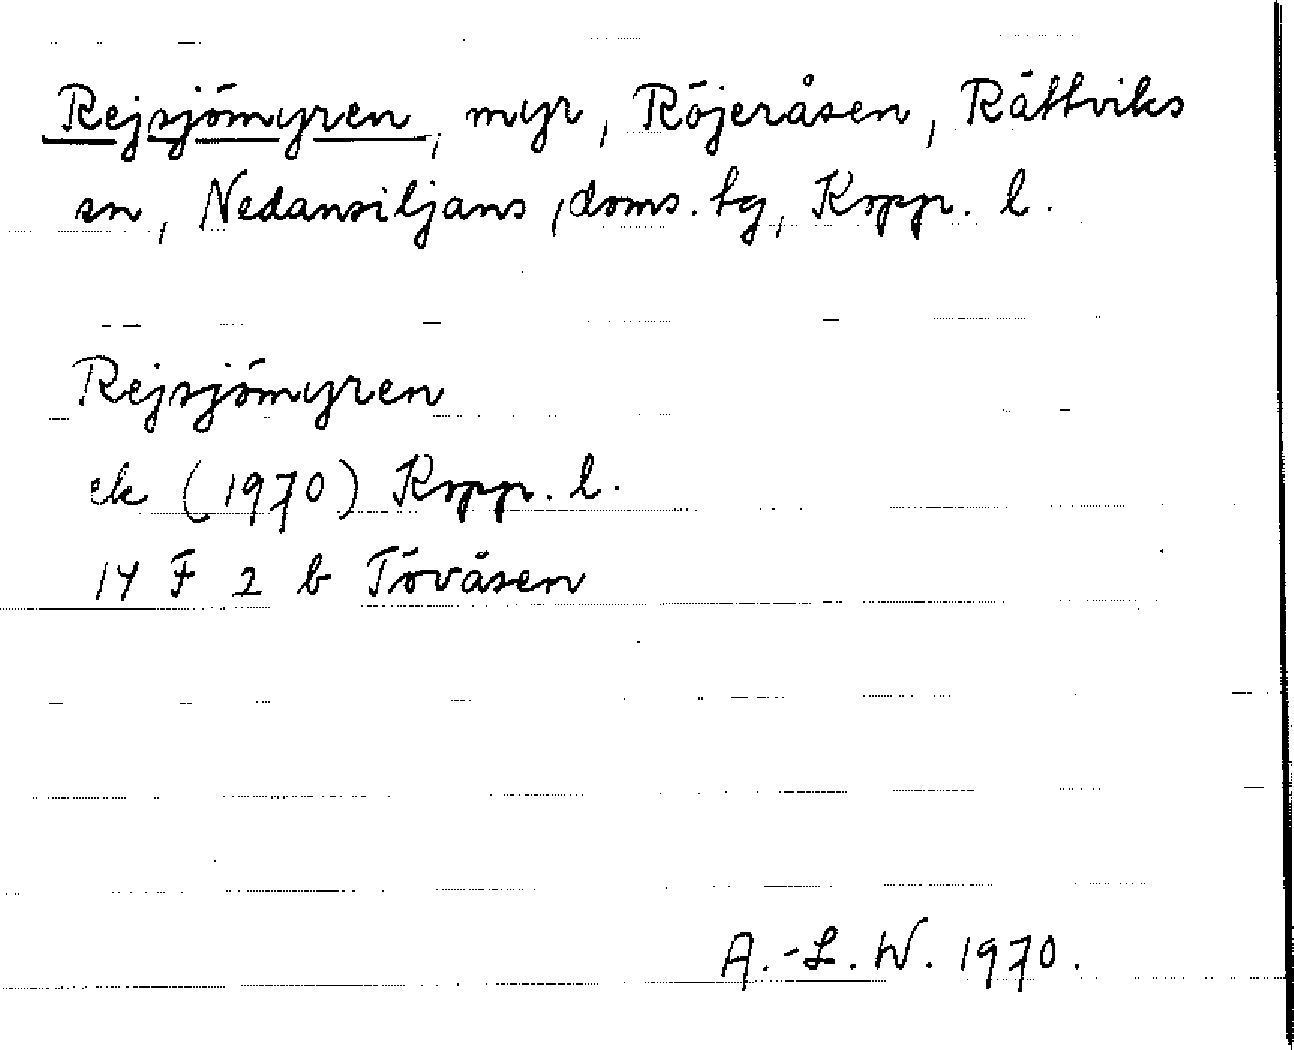 Rejsjömyren, myr, Röjeråsen, Rättviks
sn, Nedansiljans, doms. tg, Kopp. l.
Rejsjömyren
ek (1970) Kopp. l.
14 F 2 b Tövåsen
A.-L. W. 1970.